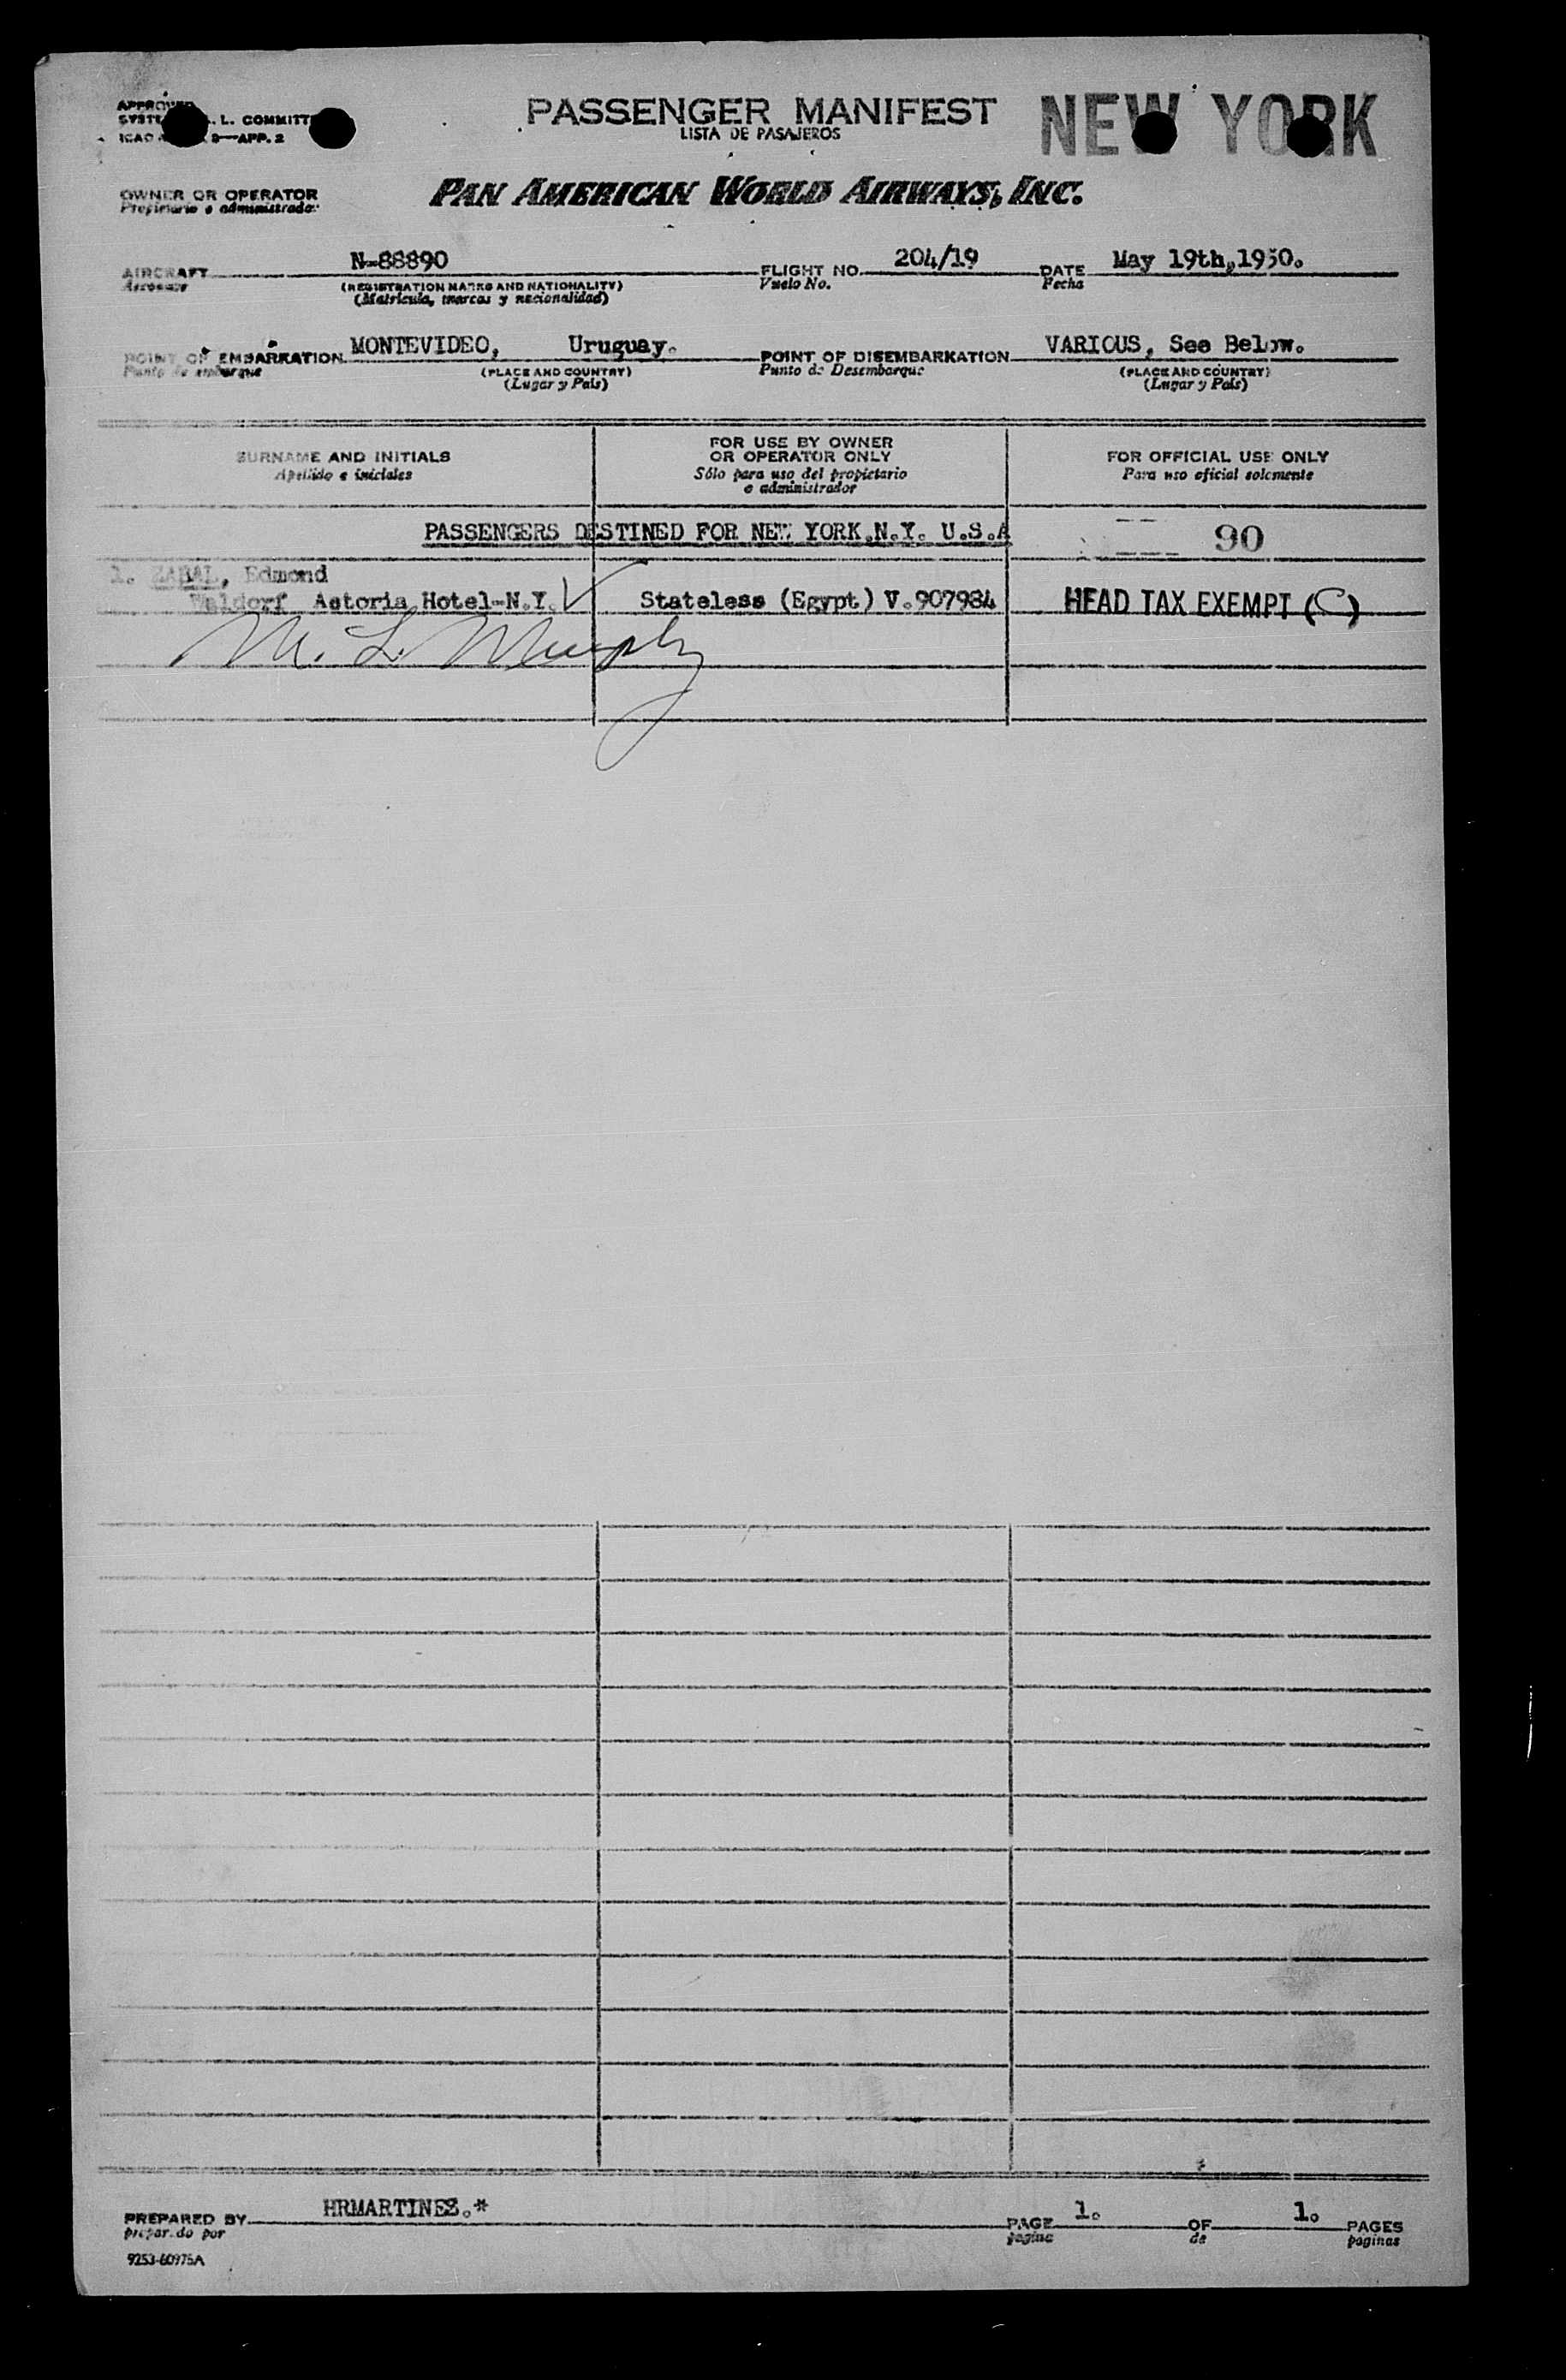 PASSENGER MANIFEST
LISTA DE PASAJEROS
NEW YORK
L. COMMITT
APP. 2
OWNER OR OPERATOR
Propietario o administrador
PAN AMERICAN WORLD AIRWAYS, INC.
AIRCRAFT N-88890 FLIGHT NO. 204/19 DATE May 19th,1950.
Aeronave (REGISTRATION MARKS AND NATIONALITY) Vuelo No. Fecha
(Matrícula, marcas y nacionalidad)
POINT OF EMBARKATION MONTEVIDEO, Uruguay. POINT OF DISEMBARKATION VARIOUS, See Below.
Punto de embarque (PLACE AND COUNTRY) Punto de Desembarque (PLACE AND COUNTRY)
(Lugar y País) (Lugar y País)
SURNAME AND INITIALS
Apellido e iniciales
FOR USE BY OWNER
OR OPERATOR ONLY
Sólo para uso del propietario
o administrador
FOR OFFICIAL USE ONLY
Para uso oficial solamente
PASSENGERS DESTINED FOR NEW YORK.N.Y. U.S.A 90
1. ZABAL, Edmond
Waldorf Astoria Hotel-N.Y. Stateless (Egypt) V.907984 HEAD TAX EXEMPT (C)
M. L. Murphy
PREPARED BY HRMARTINEZ.* PAGE 1. OF 1. PAGES
preparado por pagina de paginas
9253-60975A